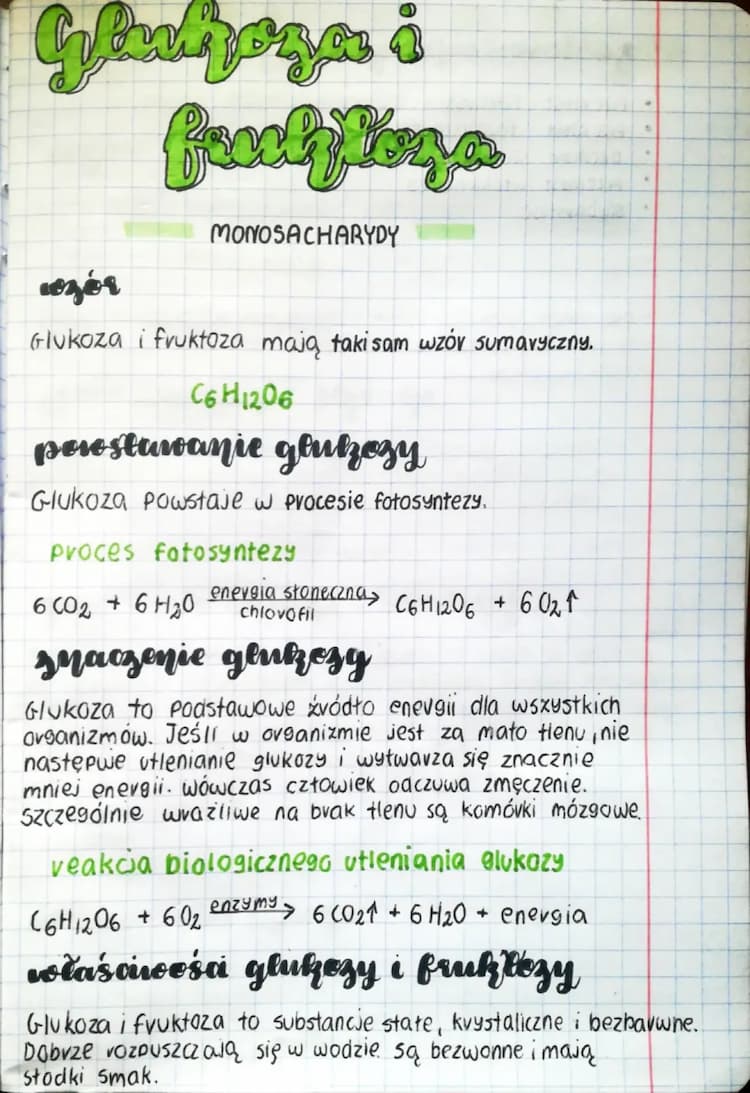 Glukoza i
fruktoza
MONOSACHARYDY
wzór
Glukoza i fruktoza mają taki sam wzór sumaryczny.
C6H12O6
powstawanie glukozy
Glukoza powstaje w procesie fotosyntezy.
proces fotosyntezy
6 CO2 + 6 H2O energia słoneczna → chlorofil C6H12O6 + 6 O2↑
znaczenie glukozy
Glukoza to podstawowe źródło energii dla wszystkich
organizmów. Jeśli w organizmie jest za mało tlenu, nie
następuje utlenianie glukozy i wytwarza się znacznie
mniej energii. wówczas człowiek odczuwa zmęczenie.
Szczególnie wrażliwe na brak tlenu są komórki mózgowe.
reakcja biologicznego utleniania glukozy
C6H12O6 + 6 O2 enzymy → 6 CO2↑ + 6 H2O + energia
właściwości glukozy i fruktozy
Glukoza i fruktoza to substancje stałe, krystaliczne i bezbarwne.
Dobrze rozpuszczają się w wodzie. są bezwonne i mają
słodki smak.